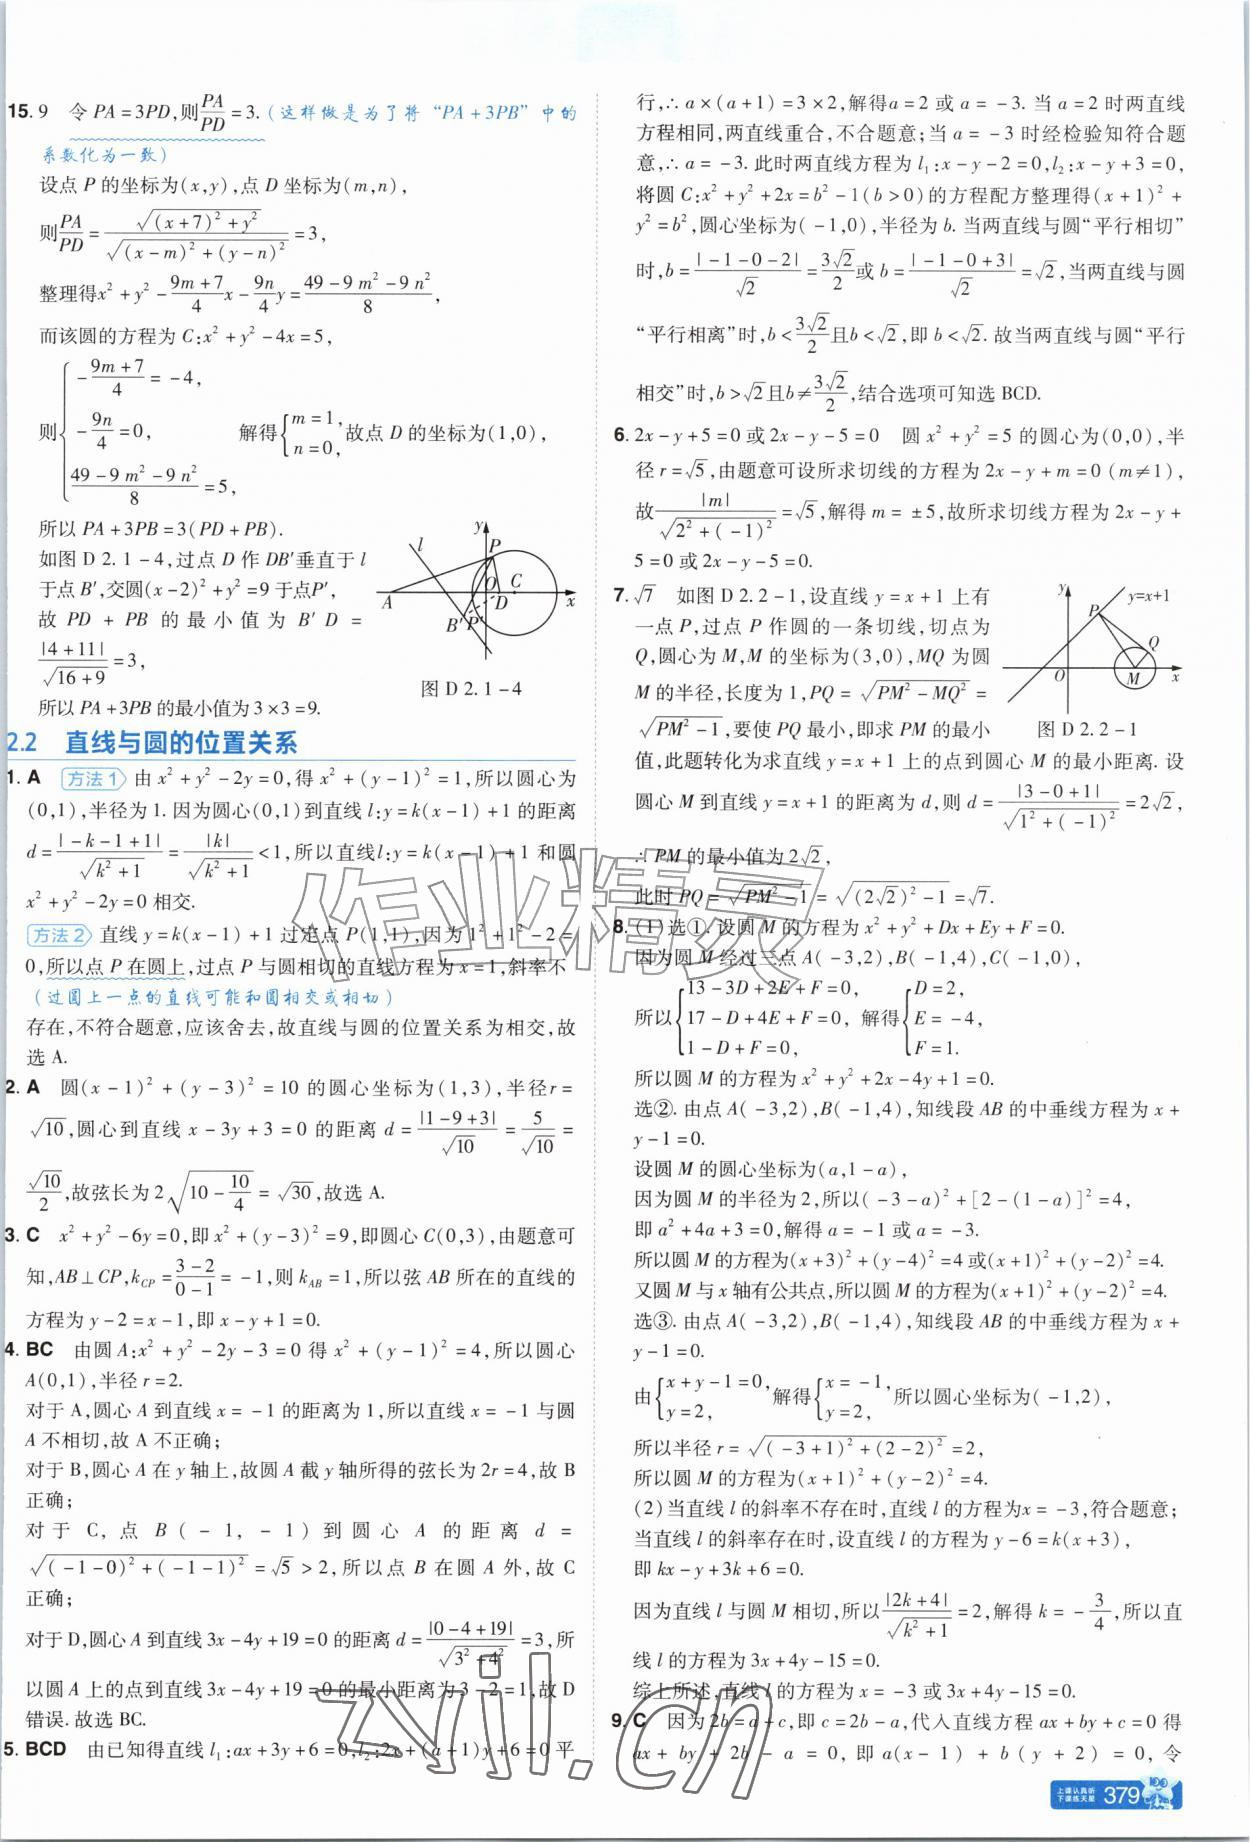 15. 9 令 PA=3PD,则PA/PD=3.(这样做是为了将“PA+3PB”中的
系数化为一致)
设点 P 的坐标为(x,y),点 D 坐标为(m,n),
则PA/PD=√((x+7)²+y²)/√((x-m)²+(y-n)²)=3,
整理得x²+y²-(9m+7)/4 x-9n/4 y=(49-9m²-9n²)/8,
而该圆的方程为 C:x²+y²-4x=5,
则{-(9m+7)/4=-4,
-9n/4=0, 解得{m=1, n=0,故点 D 的坐标为(1,0),
(49-9m²-9n²)/8=5,
所以 PA+3PB=3(PD+PB).
如图 D 2.1-4,过点 D 作 DB′垂直于 l
于点 B′,交圆(x-2)²+y²=9 于点P′,
故 PD+PB 的最小值为 B′D=
|4+11|/√(16+9)=3,
所以 PA+3PB 的最小值为 3×3=9.
l y P O C A B′ P′ D x
图 D 2.1-4
2.2 直线与圆的位置关系
1. A 方法1 由 x²+y²-2y=0,得 x²+(y-1)²=1,所以圆心为
(0,1),半径为 1. 因为圆心(0,1)到直线 l:y=k(x-1)+1 的距离
d=|-k-1+1|/√(k²+1)=|k|/√(k²+1)<1,所以直线l:y=k(x-1)+1 和圆
x²+y²-2y=0 相交.
方法2 直线 y=k(x-1)+1 过定点 P(1,1),因为 1²+1²-2=
0,所以点 P 在圆上,过点 P 与圆相切的直线方程为 x=1,斜率不
(过圆上一点的直线可能和圆相交或相切)
存在,不符合题意,应该舍去,故直线与圆的位置关系为相交,故
选 A.
2. A 圆(x-1)²+(y-3)²=10 的圆心坐标为(1,3),半径r=
√10,圆心到直线 x-3y+3=0 的距离 d=|1-9+3|/√10=5/√10=
√10/2,故弦长为 2√(10-10/4)=√30,故选 A.
3. C x²+y²-6y=0,即 x²+(y-3)²=9,即圆心 C(0,3),由题意可
知,AB⊥CP,k_CP=(3-2)/(0-1)=-1,则 k_AB=1,所以弦 AB 所在的直线的
方程为 y-2=x-1,即 x-y+1=0.
4. BC 由圆 A:x²+y²-2y-3=0 得 x²+(y-1)²=4,所以圆心
A(0,1),半径 r=2.
对于 A,圆心 A 到直线 x=-1 的距离为 1,所以直线 x=-1 与圆
A 不相切,故 A 不正确;
对于 B,圆心 A 在 y 轴上,故圆 A 截 y 轴所得的弦长为 2r=4,故 B
正确;
对于 C,点 B(-1,-1)到圆心 A 的距离 d=
√((-1-0)²+(-1-1)²)=√5>2,所以点 B 在圆 A 外,故 C
正确;
对于 D,圆心 A 到直线 3x-4y+19=0 的距离 d=|0-4+19|/√(3²+4²)=3,所
以圆 A 上的点到直线 3x-4y+19=0 的最小距离为 3-2=1,故 D
错误.故选 BC.
5. BCD 由已知得直线 l₁:ax+3y+6=0,l₂:2x+(a+1)y+6=0 平
行,∴a×(a+1)=3×2,解得a=2 或 a=-3. 当 a=2 时两直线
方程相同,两直线重合,不合题意;当 a=-3 时经检验知符合题
意,∴a=-3. 此时两直线方程为 l₁:x-y-2=0,l₂:x-y+3=0,
将圆 C:x²+y²+2x=b²-1(b>0)的方程配方整理得(x+1)²+
y²=b²,圆心坐标为(-1,0),半径为 b. 当两直线与圆“平行相切”
时,b=|-1-0-2|/√2=3√2/2或 b=|-1-0+3|/√2=√2,当两直线与圆
“平行相离”时,b<3√2/2且b<√2,即 b<√2. 故当两直线与圆“平行
相交”时,b>√2且b≠3√2/2,结合选项可知选 BCD.
6. 2x-y+5=0 或 2x-y-5=0 圆 x²+y²=5 的圆心为(0,0),半
径 r=√5,由题意可设所求切线的方程为 2x-y+m=0 (m≠1),
故|m|/√(2²+(-1)²)=√5,解得 m=±5,故所求切线方程为 2x-y+
5=0 或 2x-y-5=0.
7. √7 如图 D 2.2-1,设直线 y=x+1 上有
一点 P,过点 P 作圆的一条切线,切点为
Q,圆心为 M,M 的坐标为(3,0),MQ 为圆
M 的半径,长度为 1,PQ=√(PM²-MQ²)=
√(PM²-1),要使 PQ 最小,即求 PM 的最小
y P y=x+1 Q O M x
图 D 2.2-1
值,此题转化为求直线 y=x+1 上的点到圆心 M 的最小距离. 设
圆心 M 到直线 y=x+1 的距离为 d,则 d=|3-0+1|/√(1²+(-1)²)=2√2,
∴PM 的最小值为 2√2,
此时 PQ=√(PM²-1)=√((2√2)²-1)=√7.
8. (1)选①. 设圆 M 的方程为 x²+y²+Dx+Ey+F=0.
因为圆 M 经过三点 A(-3,2),B(-1,4),C(-1,0),
所以{13-3D+2E+F=0, 17-D+4E+F=0, 1-D+F=0, 解得{D=2, E=-4, F=1.
所以圆 M 的方程为 x²+y²+2x-4y+1=0.
选②. 由点 A(-3,2),B(-1,4),知线段 AB 的中垂线方程为 x+
y-1=0.
设圆 M 的圆心坐标为(a,1-a),
因为圆 M 的半径为 2,所以(-3-a)²+[2-(1-a)]²=4,
即 a²+4a+3=0,解得 a=-1 或 a=-3.
所以圆 M 的方程为(x+3)²+(y-4)²=4或(x+1)²+(y-2)²=4.
又圆 M 与 x 轴有公共点,所以圆 M 的方程为(x+1)²+(y-2)²=4.
选③. 由点 A(-3,2),B(-1,4),知线段 AB 的中垂线方程为 x+
y-1=0.
由{x+y-1=0, y=2, 解得{x=-1, y=2, 所以圆心坐标为(-1,2),
所以半径 r=√((-3+1)²+(2-2)²)=2,
所以圆 M 的方程为(x+1)²+(y-2)²=4.
(2)当直线 l 的斜率不存在时,直线 l 的方程为x=-3,符合题意;
当直线 l 的斜率存在时,设直线 l 的方程为 y-6=k(x+3),
即 kx-y+3k+6=0.
因为直线 l 与圆 M 相切,所以|2k+4|/√(k²+1)=2,解得 k=-3/4,所以直
线 l 的方程为 3x+4y-15=0.
综上所述,直线 l 的方程为 x=-3 或 3x+4y-15=0.
9. C 因为 2b=a+c,即 c=2b-a,代入直线方程 ax+by+c=0 得
ax+by+2b-a=0,即 a(x-1)+b(y+2)=0,令
上课认真听
下课练天星
379
作业精灵
zyjl.cn